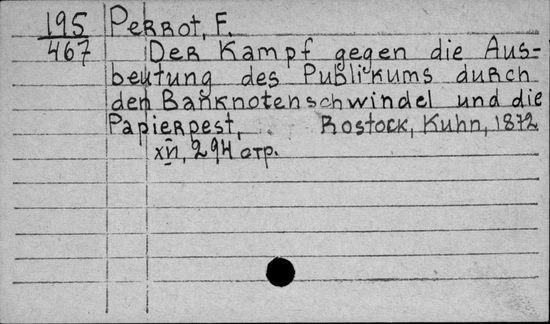 195 Perrot, F.
467 Der Kampf gegen die Aus-
beutung des Publikums durch
den Banknotenschwindel und die
Papierpest, Rostock, Kuhn, 1872
XVI, 294 стр.